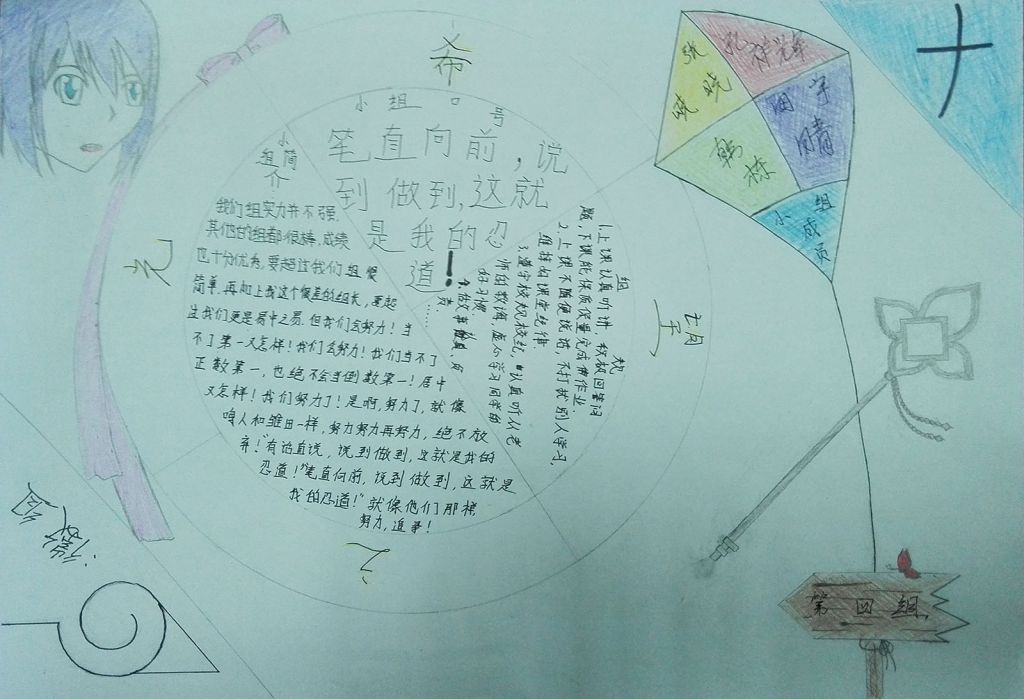 希
望
之
光
十
小组口号
笔直向前,说
到做到,这就
是我的忍
道!
小
组简
介
我们组实力并不强,
其他的组都很棒,成绩
也十分优秀,要超过我们组很
简单,再加上我这个很差的组长,要超
过我们更是易中之易.但我们会努力!当
不了第一又怎样!我们会努力!我们当不了
正数第一,也绝不会当倒数第一!居中
又怎样!我们努力了!是啊,努力了,就像
鸣人和雏田一样,努力努力再努力,绝不放
弃!"有话直说,说到做到,这就是我的
忍道!"笔直向前,说到做到,这就是
我的忍道!"就像他们那样
努力,追梦!
组规
1.上课认真听讲,积极回答问
题,下课能保质保量完成作业.
2.上课不随便说话,不打扰别人学习,
维持好课堂纪律.
3.遵守校规校纪,认真听从老
师的教诲,虚心学习同学的
好习惯
4.做事认真、负
责.……
张
晓
孔祥
韩栋
宇
晴
小组
成员
第四组